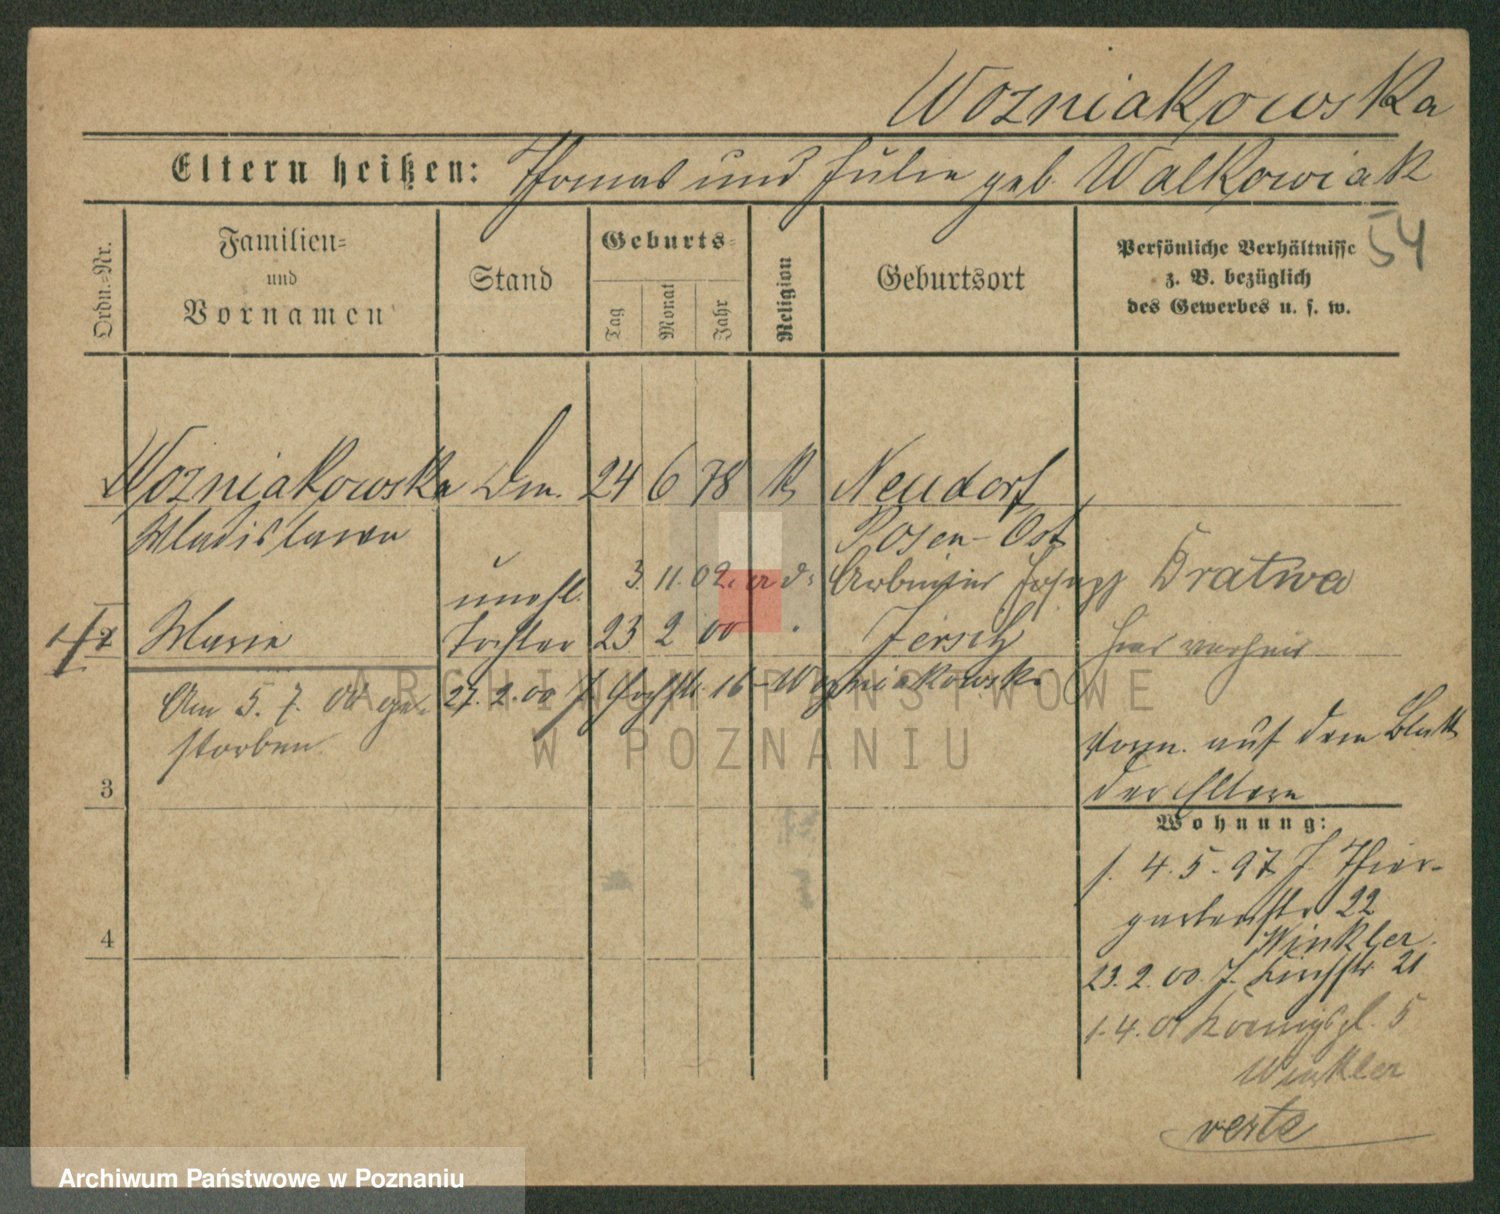 Wozniakowska
Eltern heißen: Thomas und Julie geb. Walkowiak
54
Ordn.-Nr.
Familien-
und
Vornamen
Stand
Geburts-
Tag
Monat
Jahr
Religion
Geburtsort
Persönliche Verhältnisse
z. B. bezüglich
des Gewerbes u. s. w.
Wozniakowska Dm. 24 6 78 k Neudorf
Wladislawa Posen-Ost
3. 11. 02. Arbeiter Josef Bratwa
unehl.
hier verheir.
2 Marie Tochter 23 2 00 Jersitz
Am 5. 7. 00 ge-
storben
27. 2. 00 J. 16 Wozniakowska
vorm. auf dem Blatt
der Eltern
3
Wohnung:
1. 4. 5. 97 J. Thier-
gartenstr 22
Winkler
4
23. 2. 00. J. Kirchstr 21
1. 4. 01 Königspl. 5
Winkler
verte
ARCHIWUM PAŃSTWOWE
W POZNANIU
Archiwum Państwowe w Poznaniu